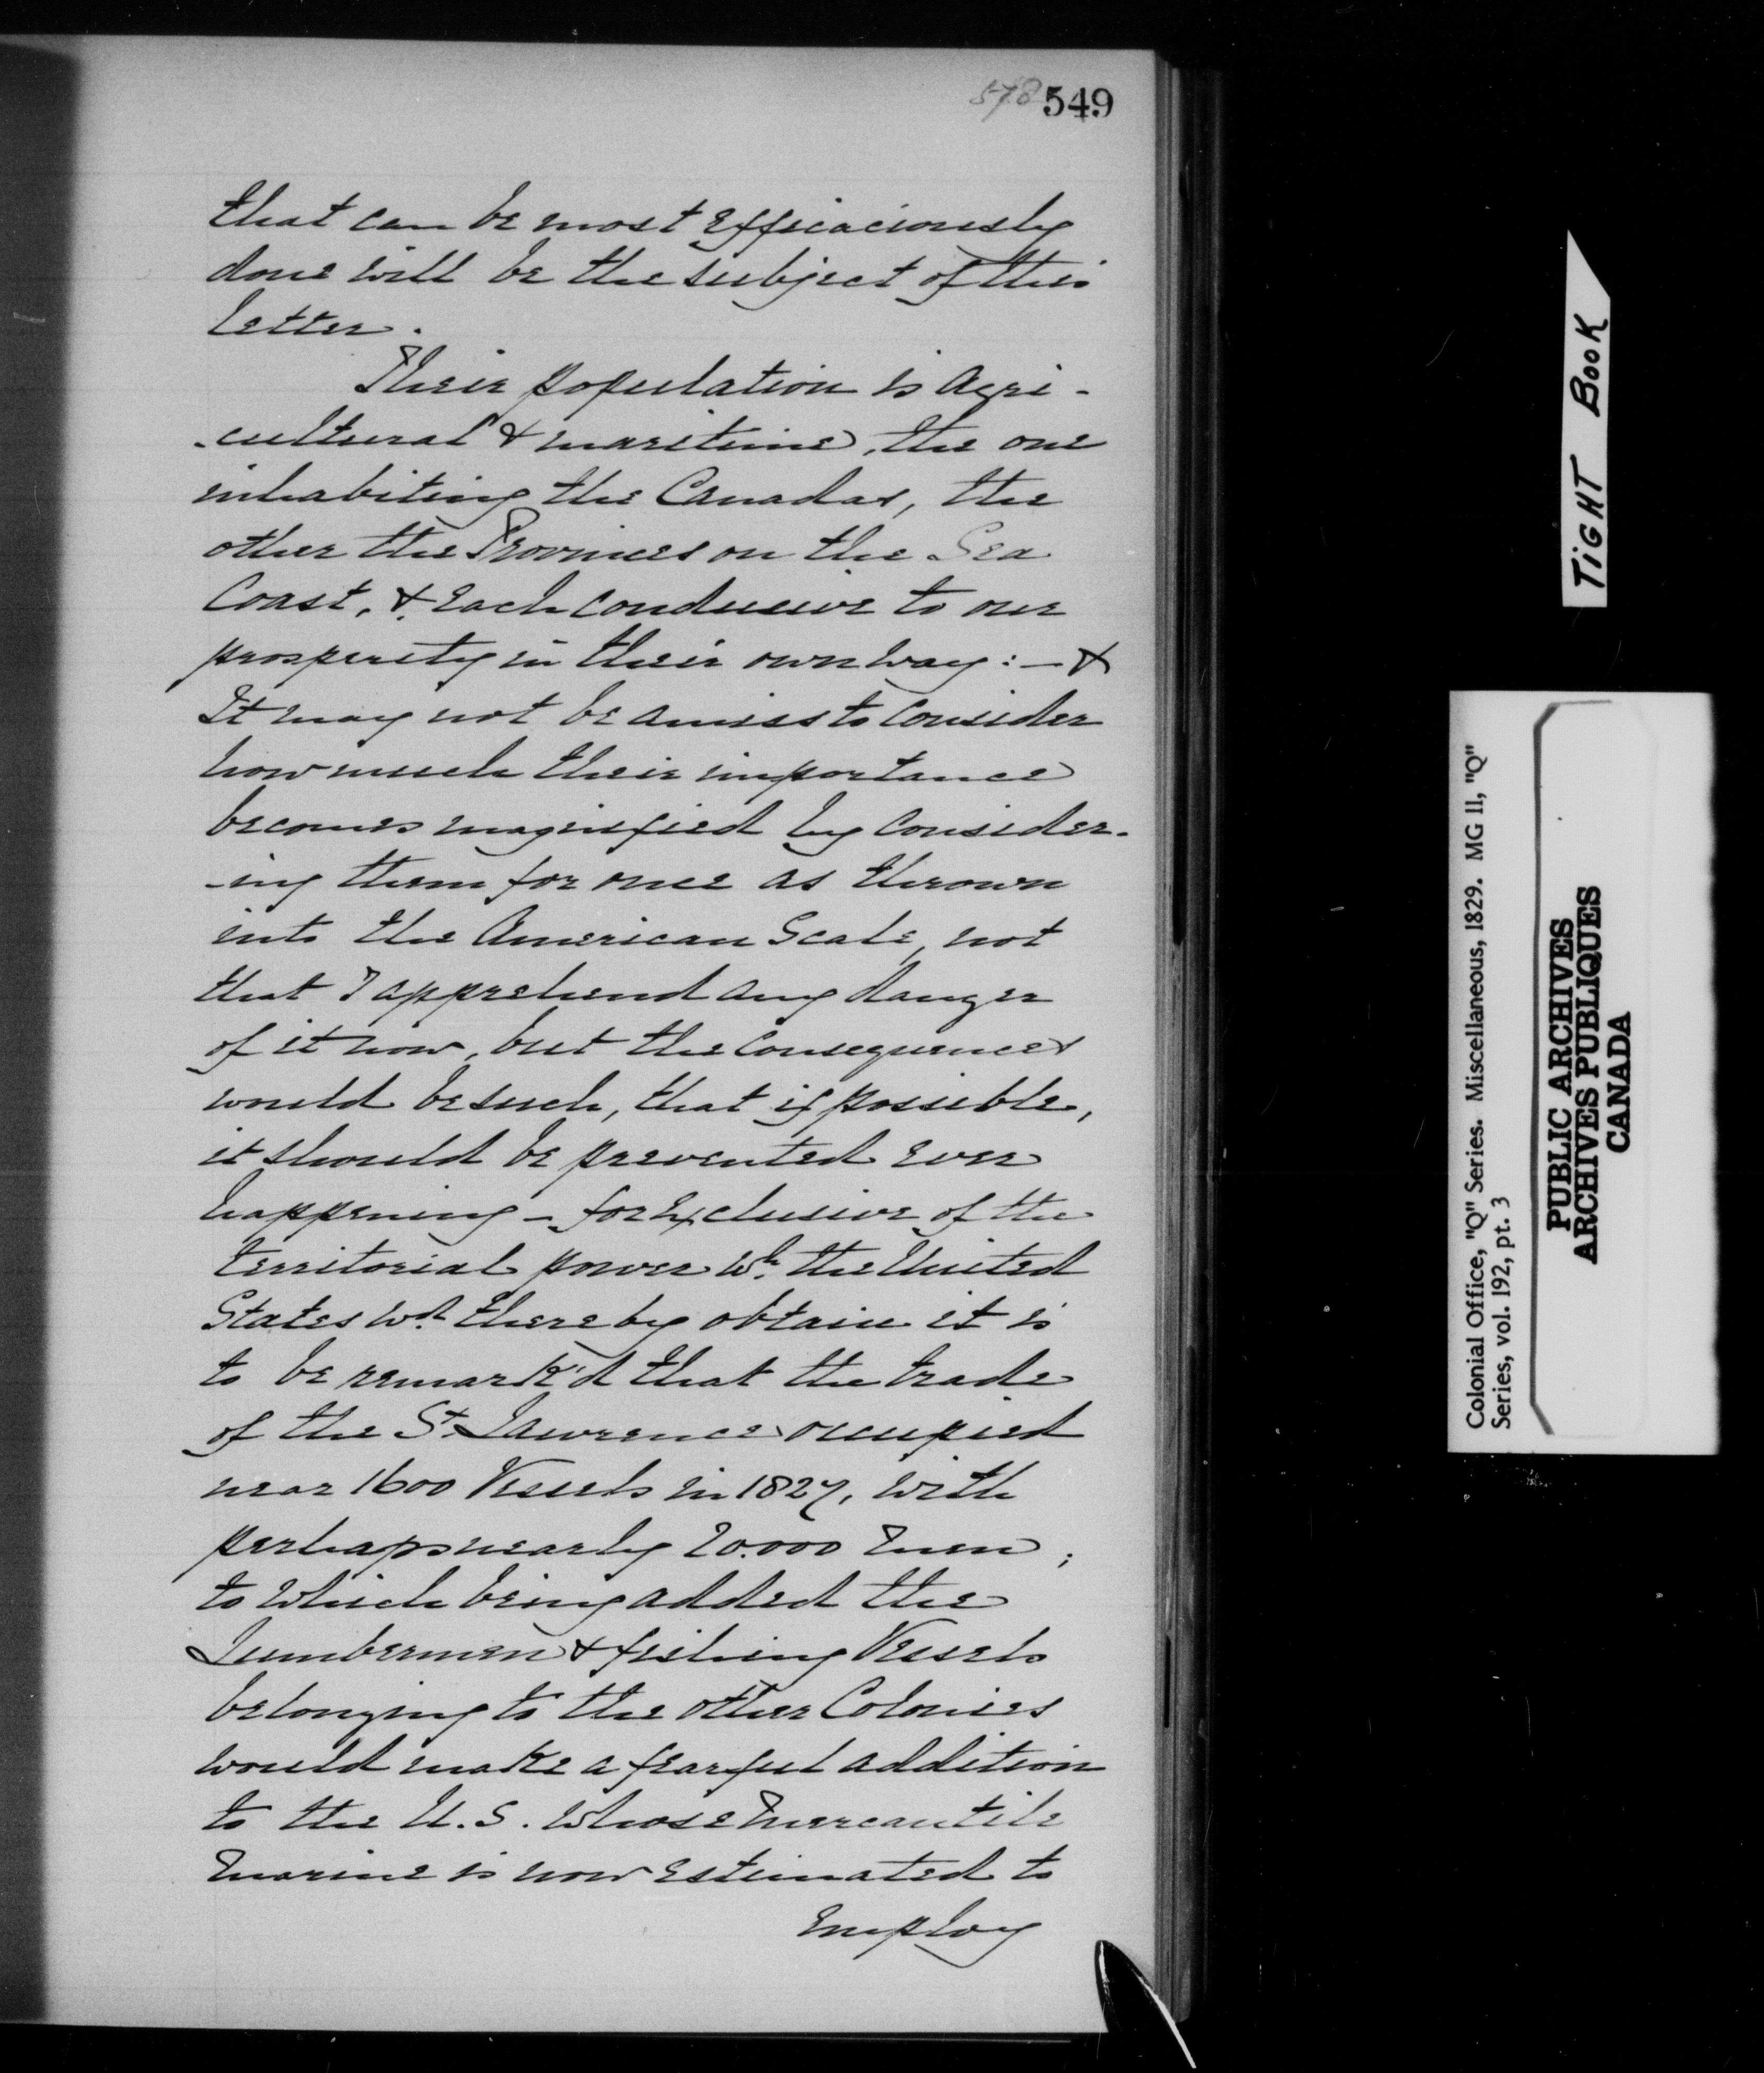 578 549
that can be most efficaciously
done will be the subject of this
letter.
Their population is Agri-
-cultural & maritime, the one
inhabiting the Canadas, the
other the Provinces on the Sea
Coast, & each conducive to our
prosperity in their own way: - &
It may not be amiss to consider
how much their importance
becomes magnified by consider-
-ing them for once as thrown
into the American Scale, not
that I apprehend any danger
of it now, but the consequences
would be such, that if possible,
it should be prevented ever
happening - for exclusive of the
territorial power wh. the United
States wd. thereby obtain it is
to be remark'd that the trade
of the St. Lawrence occupied
near 1600 Vessels in 1827, with
perhaps nearly 20.000 men;
to which being added the
Lumbermen & fishing Vessels
belonging to the other Colonies
would make a fearful addition
to the U.S. whose mercantile
marine is now estimated to
employ
TIGHT BOOK
Colonial Office, "Q" Series. Miscellaneous, 1829. MG 11, "Q"
Series, vol. 192, pt. 3
PUBLIC ARCHIVES
ARCHIVES PUBLIQUES
CANADA